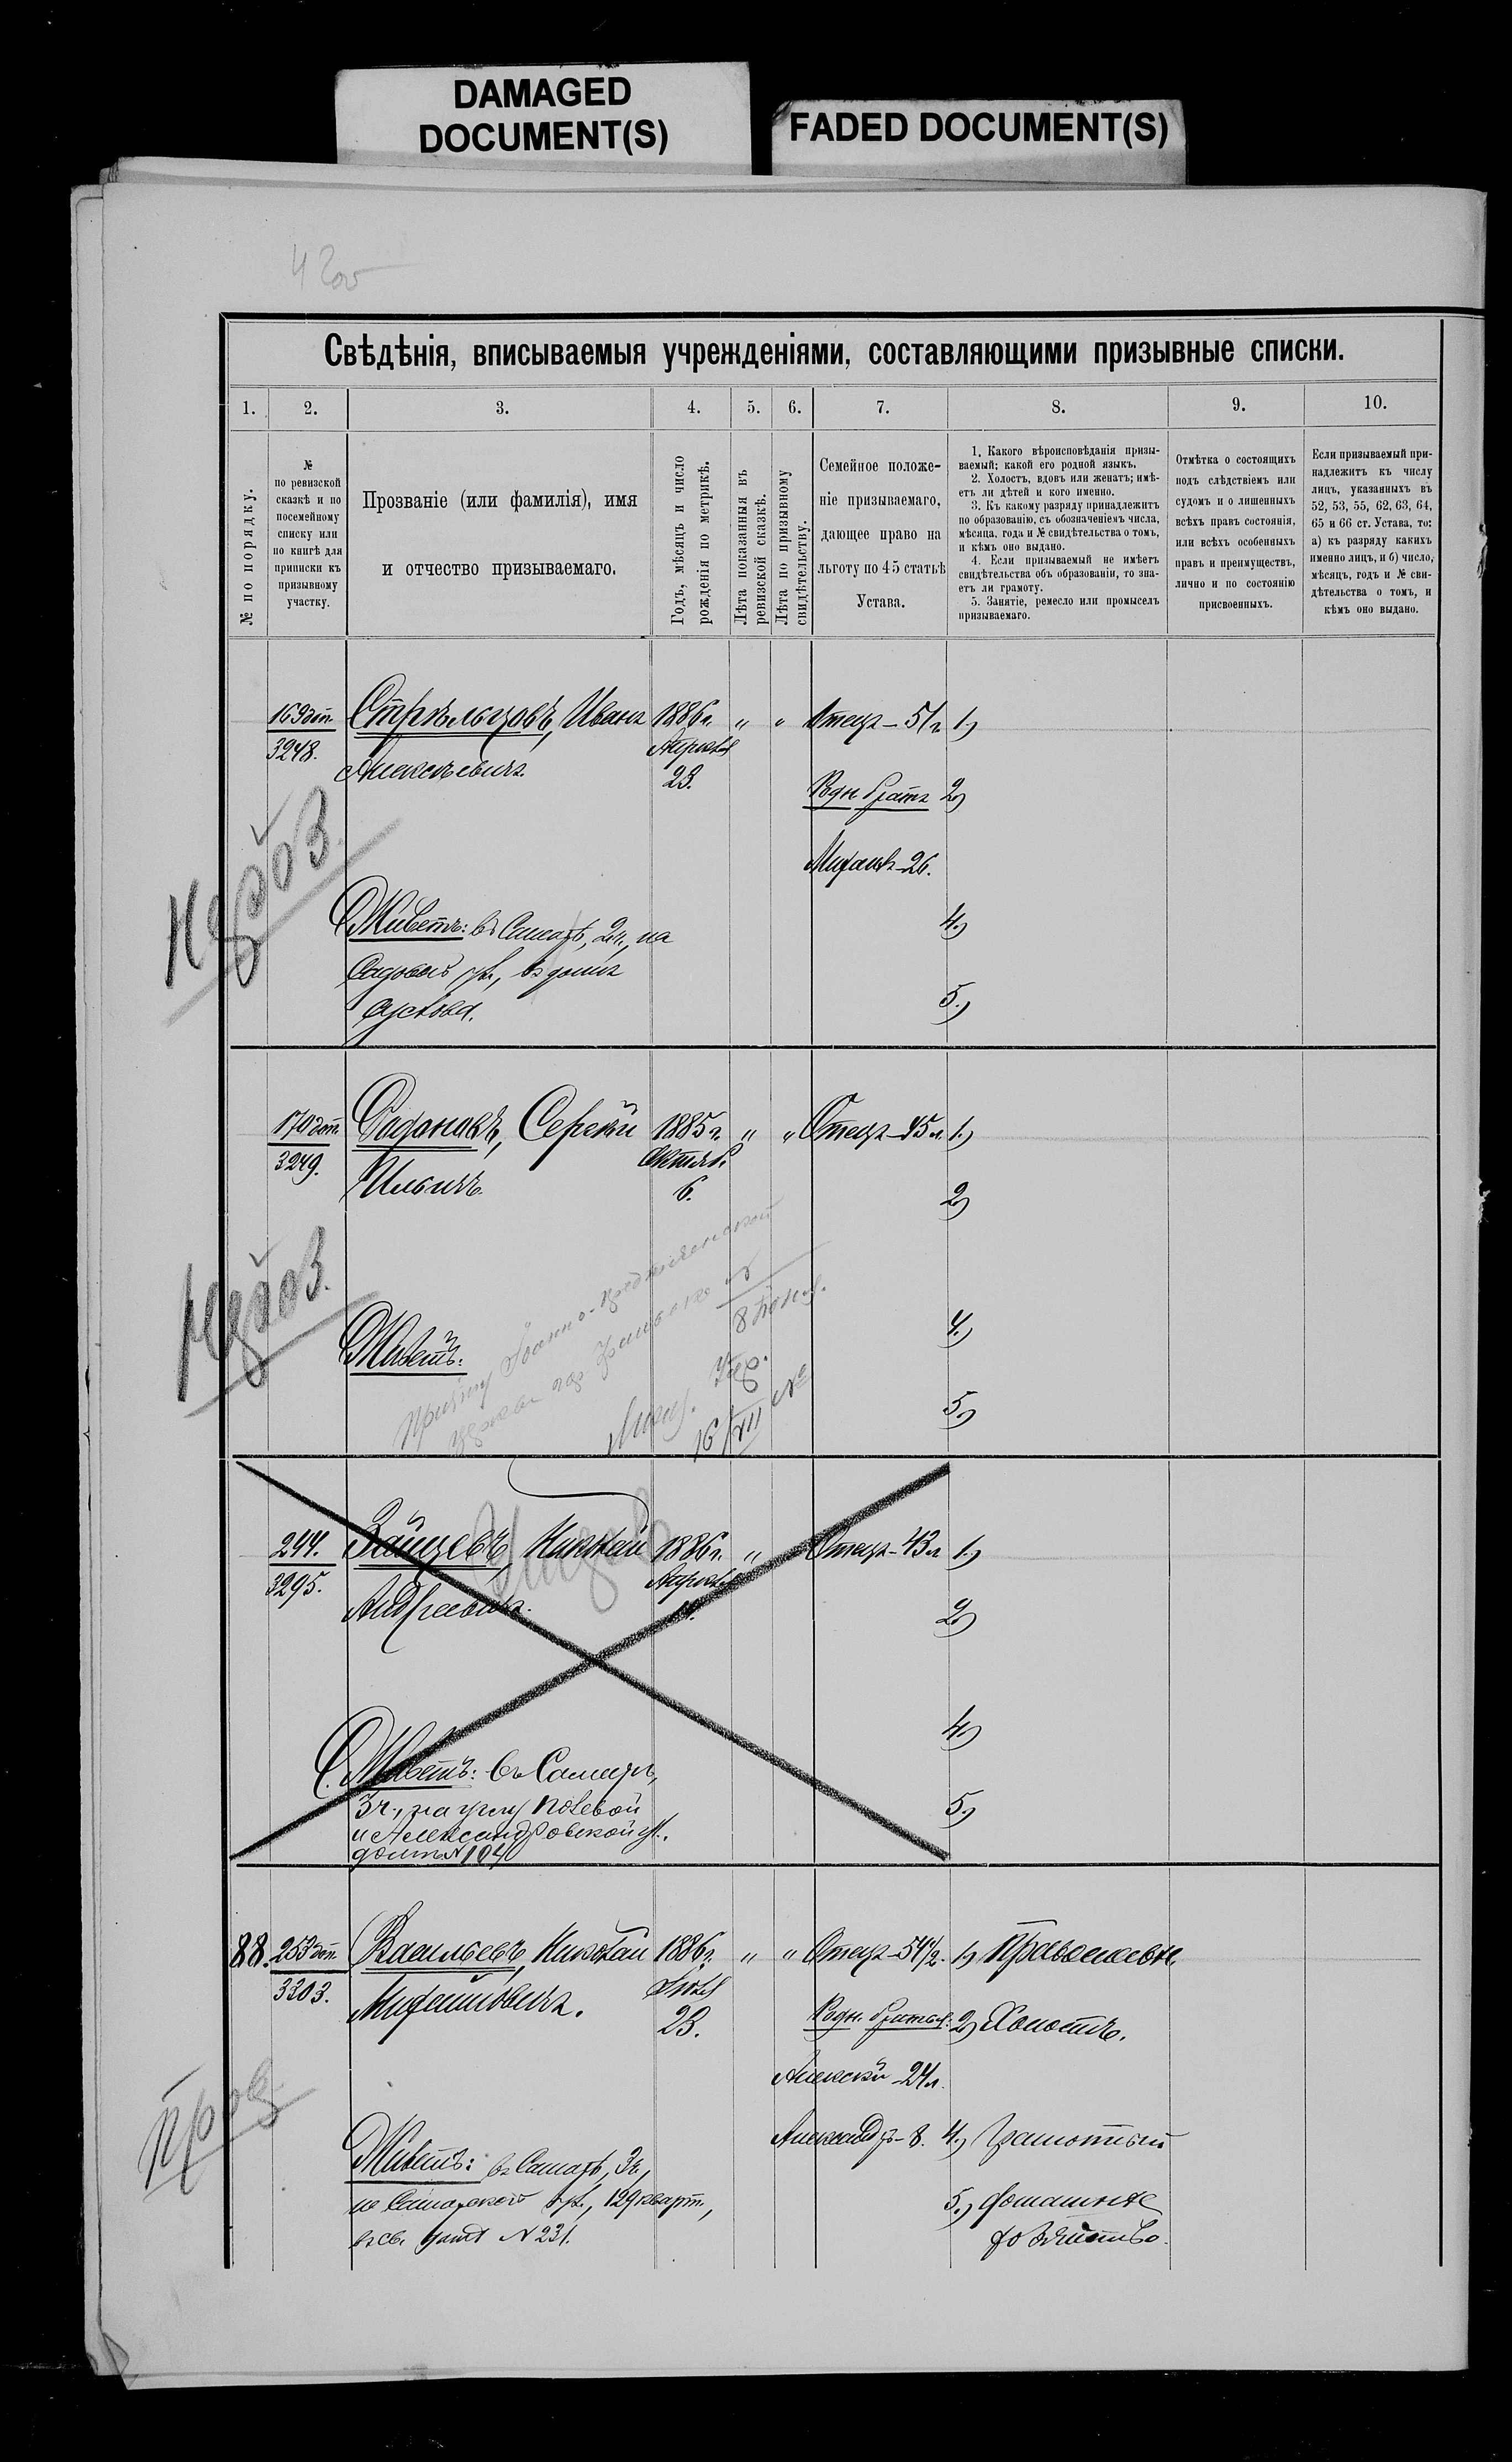 DAMAGED
DOCUMENT(S)
FADED DOCUMENT(S)
Свѣдѣнія, вписываемыя учрежденіями, составляющими призывные списки.
1. 2. 3. 4. 5. 6. 7. 8. 9. 10.
№ по порядку.
№
по ревизской
сказкѣ и по
посемейному
списку или
по книгѣ для
приписки къ
призывному
участку.
Прозваніе (или фамилія), имя
и отчество призываемаго.
Годъ, мѣсяцъ и число
рожденія по метрикѣ.
Лѣта показанныя въ
ревизской сказкѣ.
Лѣта по призывному
свидѣтельству.
Семейное положе-
ніе призываемаго,
дающее право на
льготу по 45 статьѣ
Устава.
1. Какого вѣроисповѣданія призы-
ваемый; какой его родной языкъ.
2. Холостъ, вдовъ или женатъ; имѣ-
етъ ли дѣтей и кого именно.
3. Къ какому разряду принадлежитъ
по образованію, съ обозначеніемъ числа,
мѣсяца, года и № свидѣтельства о томъ,
и кѣмъ оно выдано.
4. Если призываемый не имѣетъ
свидѣтельства объ образованіи, то зна-
етъ ли грамоту.
5. Занятіе, ремесло или промыселъ
призываемаго.
Отмѣтка о состоящихъ
подъ слѣдствіемъ или
судомъ и о лишенныхъ
всѣхъ правъ состоянія,
или всѣхъ особенныхъ
правъ и преимуществъ,
лично и по состоянію
присвоенныхъ.
Если призываемый при-
надлежитъ къ числу
лицъ, указанныхъ въ
52, 53, 55, 62, 63, 64,
65 и 66 ст. Устава, то:
а) къ разряду какихъ
именно лицъ, и б) число,
мѣсяцъ, годъ и № сви-
дѣтельства о томъ, и
кѣмъ оно выдано.
169 доп. Стрѣльцовъ, Иванъ 1886 г. " " Отецъ - 51 г. 1)
3248. Алексѣевичъ. Апрѣля
23. Родн. братъ 2)
Михаилъ - 26.
Живетъ: въ Самарѣ, 2 ч., на 4)
Садовой ул., въ домѣ
5.)
170 доп. Сергѣй 1885 г. " " Отецъ - 45 л. 1.)
3249. Ильичъ. Октяб.
6. 2)
Живетъ: 4.)
16/VII №
5)
244. Зайцевъ, Николай 1886 г. " Отецъ - 43 л. 1.)
3295. Андреевичъ. Апрѣля
2)
4)
Живетъ: въ Самарѣ,
3 ч., на углу Полевой 5)
и Александровской ул.,
домъ № 194
88. 253 доп. Васильевъ, Николай 1886 г. " " Отецъ - 54 1/2. 1) Православн.
3303. Михайловичъ. Іюля
23. Родн. братья: 2) Холостъ.
Алексѣй - 24 л.
Александръ - 8. 4.) Грамотный
Живетъ: въ Самарѣ, 3 ч.,
по Самарской ул., 129 кварт., 5.) домашнее
въ св. домѣ № 231. хозяйство.